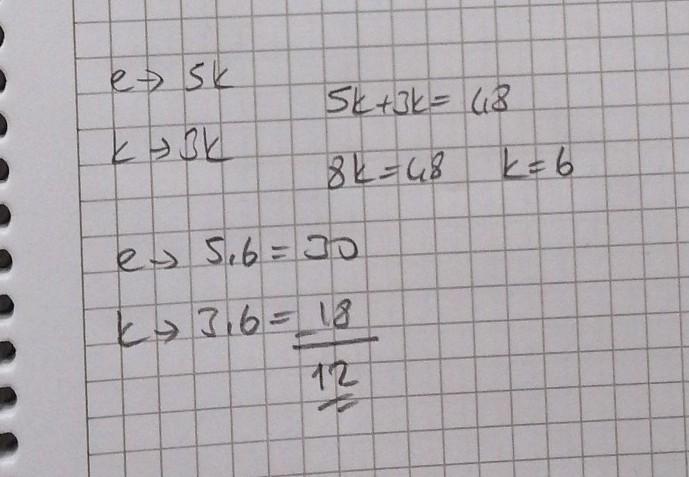 e → 5k
5k+3k= 48
k → 3k
8k=48 k=6
e → 5.6 = 30
k → 3.6 = -18
12